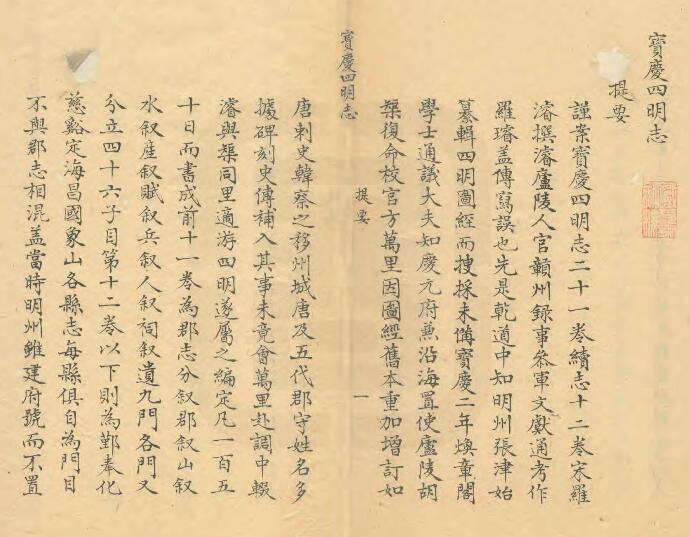 寳慶四明志
提要
謹案寳慶四明志二十一卷續志十二卷宋羅
濬撰濬廬陵人官贛州録事叅軍文獻通考作
羅璿盖傳寫誤也先是乾道中知明州張津始
纂輯四明圖經而捜採未備寳慶二年煥章閣
學士通議大夫知慶元府兼沿海置使廬陵胡
榘復命校官方萬里因圖經舊本重加增訂如
寳慶四明志
提要
一
唐刺史韓察之移州城唐及五代郡守姓名多
據碑刻史傳補入其事未竟會萬里赴調中輟
濬與榘同里適游四明遂屬之編定凡一百五
十日而書成前十一卷為郡志分叙郡叙山叙
水叙産叙賦叙兵叙人叙祠叙遺九門各門又
分立四十六子目第十二卷以下則為鄞奉化
慈谿定海昌國象山各縣志每縣俱自為門目
不與郡志相混盖當時明州雖建府號而不置